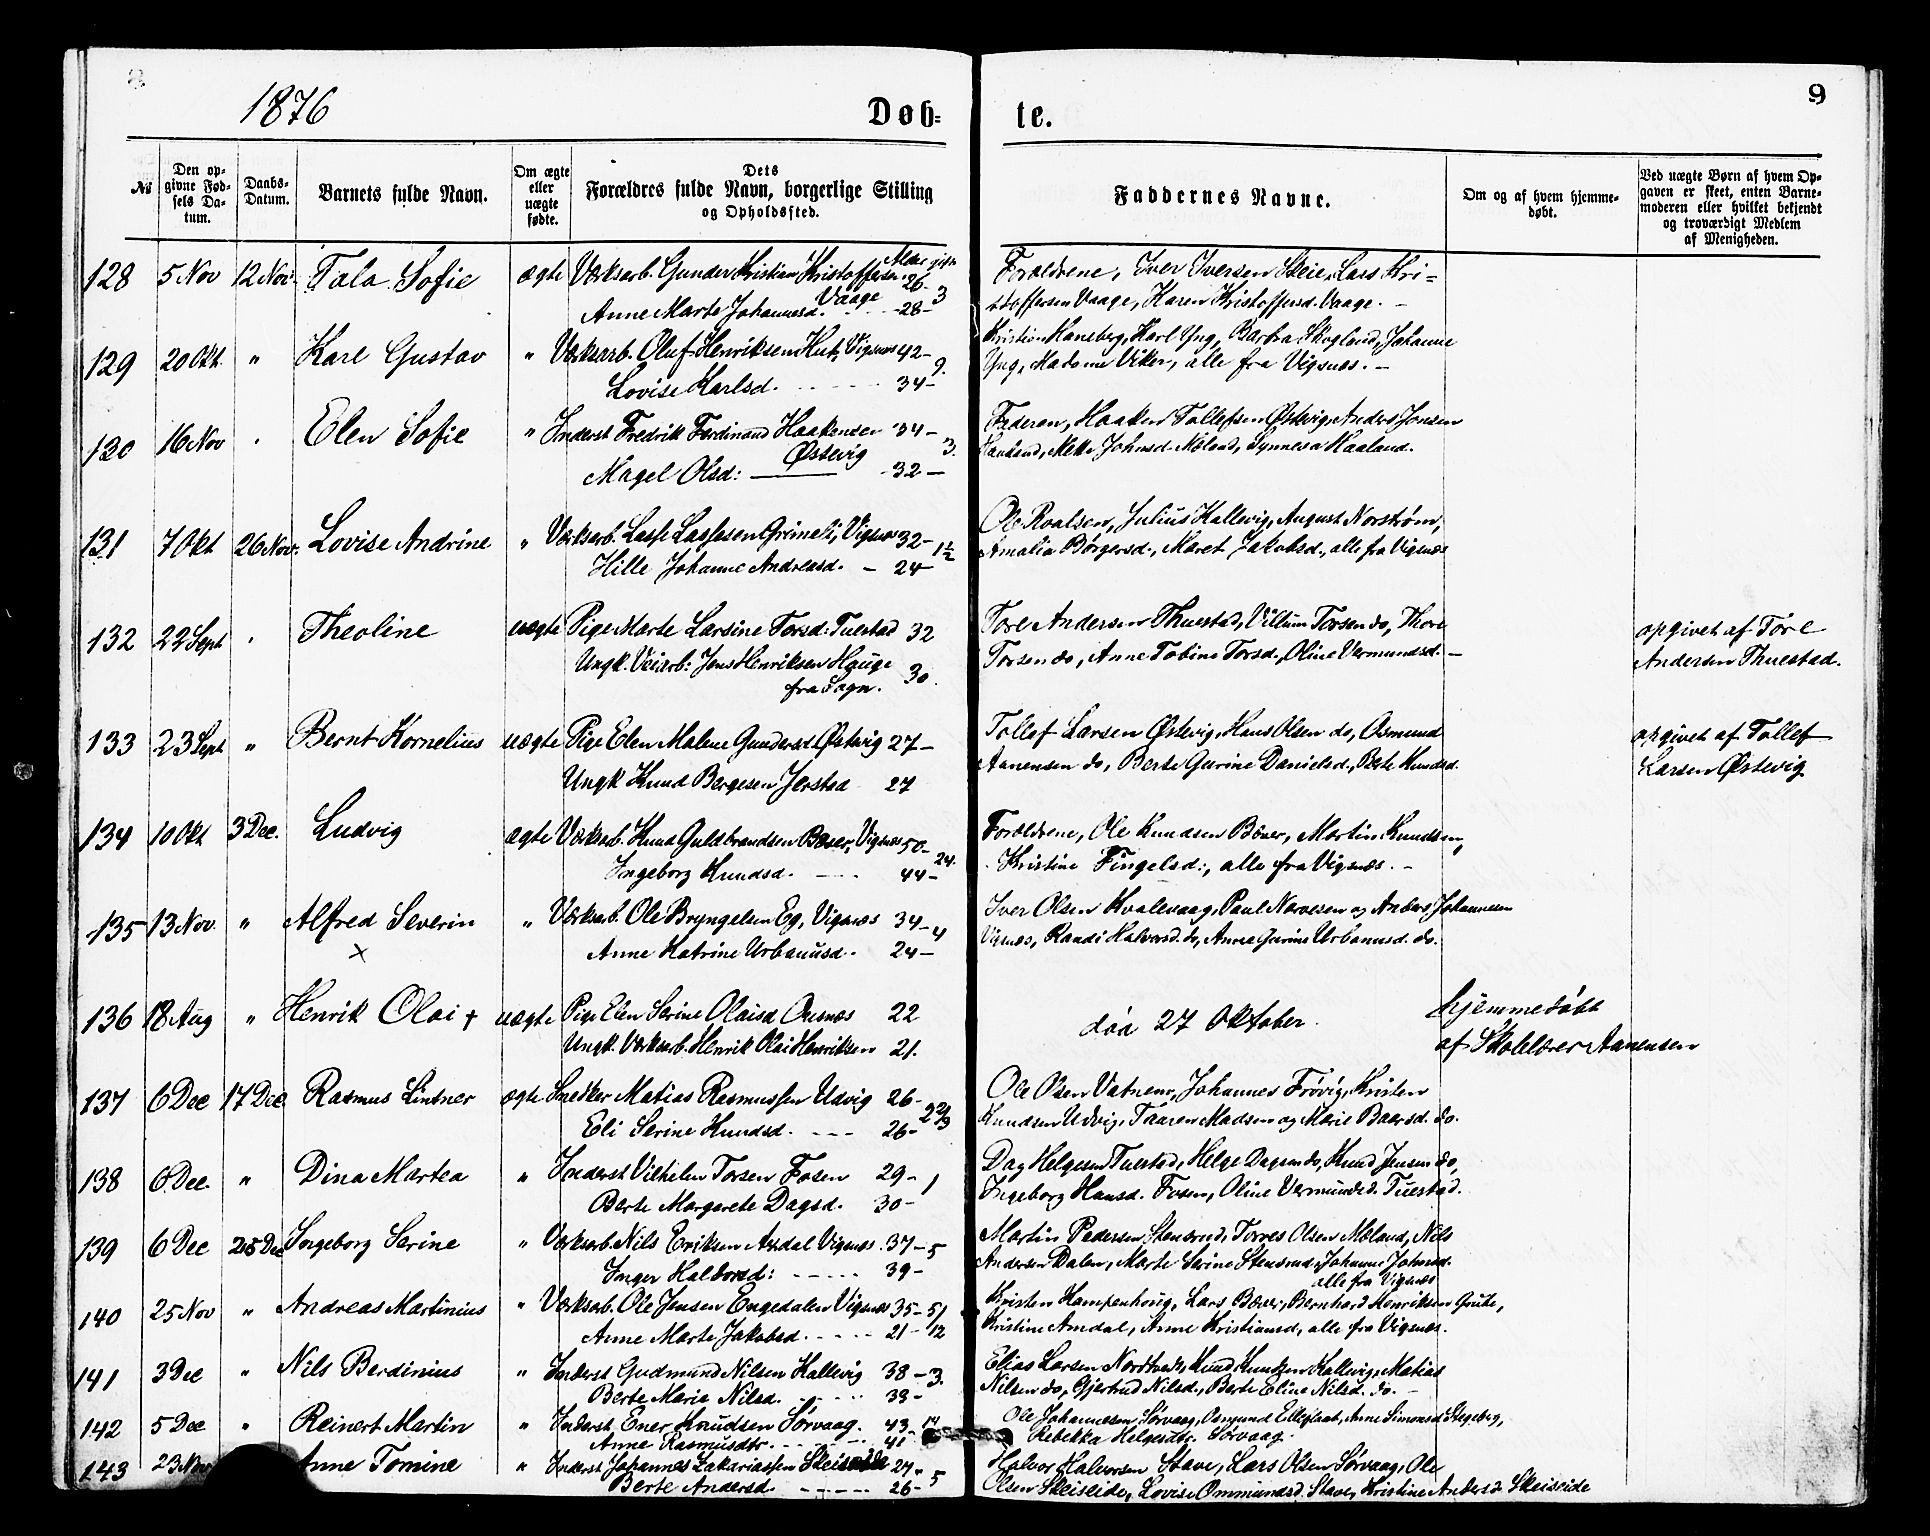 1876
Døb-
te.
9
№
Den op-
givne Fød-
sels Da-
tum.
Daabs-
Datum.
Barnets fulde Navn.
Om ægte
eller
uægte
fødte.
Dets
Forældres fulde Navn, borgerlige Stilling
og Opholdssted.
Faddernes Navne.
Om og af hvem hjemme-
døbt.
Ved uægte Børn af hvem Op-
gaven er skeet, enten Barne-
moderen eller hvilket bekjendt
og troværdigt Medlem
af Menigheden.
128 5 Nov 12 Nov. Tala Sofie ægte Værksarb. Gunder Kristian Kristoffersen 26-
Vaage 3
Anne Marte Johannesd. 28-
Forældrene, Iver Iversen Skeie, Lars Kri-
stoffersen Vaage, Karen Kristoffersd. Vaage. -
129 20 Okt. " Karl Gustav " Værksarb. Oluf Henriksen Hut, Vigsnæs 42- 9.
Lovise Karlsd. 34-
Kristian Haneberg, Karl Yng, Barbra Skogland, Johanne
Yng, Madame Viker, alle fra Vigsnæs. -
130 16 Nov " Elen Sofie " Inderst Fredrik Ferdinand Haakensen 34-
Østevig 3.
Magel Olsd: 32-
Faderen, Haaken Tollefsen Østevig, Anders Jonsen
Mette Johnsd. Moland, Synneva Haaland.
131 7 Okt 26 Nov. Lovise Andrine " Værksarb. Lasse Lassesen Grimeli, Vigsnæs 32- 1½
Hille Johanne Andreasd. - 24-
Ole Roalsen, Julius Kallevig, August Norstrøm,
Amalia Børgersd., Maret Jakobsd., alle fra Vigsnæs
132 22 Sept " Theoline uægte Pige Marte Larsine Torsd: Tuestad 32
Ungk. Veiarb: Jens Henriksen Hauge 30.
fra Sogn.
Tore Andersen Thuestad, Villum Torsen do, Thore
Torsen do, Anne Tobine Torsd., Oline Vermundsd. -
opgivet af Tore
Andersen Thuestad.
133 23 Sept " Bernt Kornelius uægte Pige Elen Malene Gundersd. Østevig 27-
Ungk Knud Bergesen Jerstad 27
Tollef Larsen Østevig, Hans Olsen do, Osmund
Aanensen do, Berte Gurine Danielsd., Berte Knudsd.
opgivet af Tollef
Larsen Østevig
134 10 Okt 3 Dec. Ludvig ægte Værksarb. Knud Guldbrandsen Bæver, Vigsnæs 50- 24.
Ingeborg Knudsd. 44-
Forældrene, Ole Knudsen Bæver, Martin Knudsen,
Kristine Fingelsd:, alle fra Vigsnæs. -
135 13 Nov. " Alfred Severin " Værksarb. Ole Bryngelsen Eg, Vigsnæs 34- 4
× Anne Katrine Urbanusd. 24-
Iver Olsen Kvalevaag, Paul Narvesen og Anders Johannesen
Vigsnæs, Randi Halvorsd. do, Anna Gurine Urbanusd. do.
136 18 Aug " Henrik Olai + uægte Pige Elen Serine Olaisd. Ousnæs 22
Ungk. Værksarb. Henrik Olai Henriksen 21.
døa 27 Oktober.
hjemmedøbt
af Skolelærer Aanensen
137 6 Dec 17 Dec Rasmus Lintner ægte Snedker Matias Rasmussen Udvig 26- 2⅔
Eli Serine Knudsd. 26-
Ole Olsen Vatnem, Johannes Frövig, Kristen
Knudsen Udvig, Taaren Madsen og Marie Baarsd. do.
138 6 Dec. " Dina Martea " Inderst Vilhelm Torsen Fosen 29- 1
Berte Margrete Dagsd. 30-
Dag Helgesen Tuestad, Helge Dagsen do, Knud Jensen do,
Ingeborg Hansd. Fosen, Oline Vermundsd. Tuestad.
139 6 Dec 25 Dec Ingeborg Serine " Værksarb. Nils Eriksen Axdal Vigsnæs. 37- 5
Inger Halvorsd: 39-
Martin Pedersen Stensrud, Torres Olsen Moland, Nils
Andersen Dalen, Marte Serine Stensrud, Johanne Johnsd.
alle fra Vigsnæs
140 25 Nov " Andreas Martinius " Værksarb. Ole Jensen Engedalen Vigsnæs 35- 5/12
Anne Marte Jakobsd. 21-
Kristen Hampenhoug, Lars Bæver, Bernhard Henriksen Grube,
Kristine Amdal, Anne Kristiansd, alle fra Vigsnæs.
141 3 Dec " Nils Berdinius " Inderst Gudmund Nilsen Kallevig 38- 3.
Berte Marie Nilsd. 33-
Elias Larsen Knud Knudsen Kallevig, Matias
Nilsen do, Gjertrud Nilsd., Berte Eline Nilsd. do. -
142 5 Dec " Reinert Martin " Inderst, Ener Knudsen Sørvaag. 43- 14
Anne Rasmusdtr. 41-
Ole Johannesen Sørvaag, Osmund Elleflaat, Anne Simonsd Stegeberg,
Rebekka Helgesdtr. Sørvaag.
143 23 Nov Anne Tomine " Inderst Johannes Zakariassen Skeiseide 27- 5
Berte Andersd. 26-
Halvor Halvorsen Stave, Lars Olsen Sørvaag, Ole
Olsen Skeiseide, Lovise Ommundsd. Stave, Kristine Andersd Skeiseide